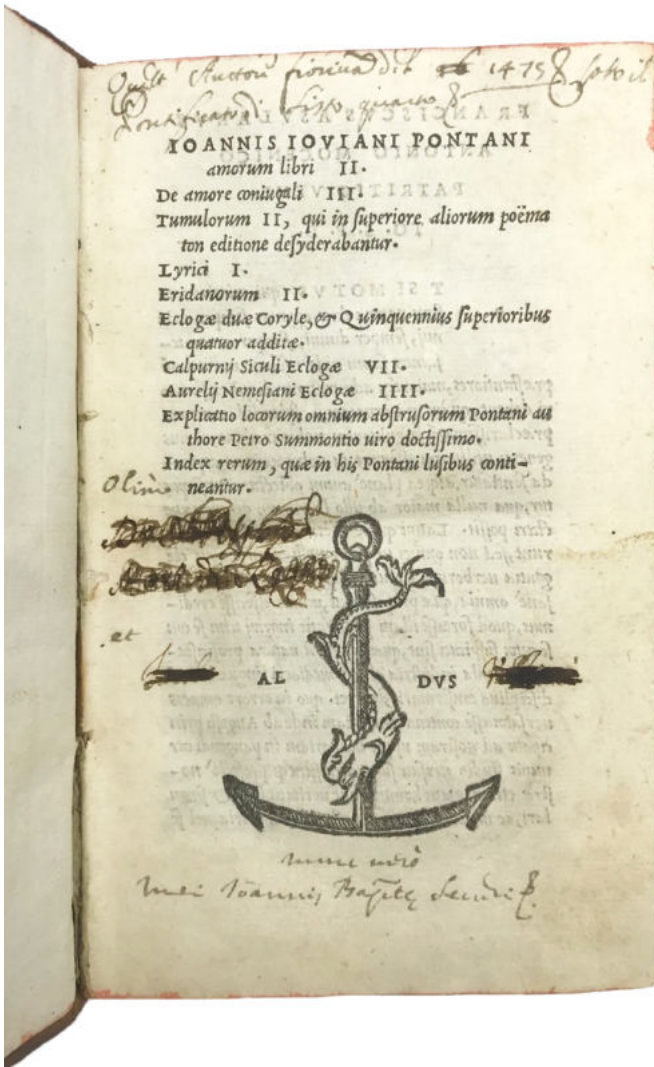 Quest' Auttore fioriva del 1475 sotto il
Pontificato di Sisto quarto
IOANNIS IOVIANI PONTANI
amorum libri II.
De amore coniugali III.
Tumulorum II, qui in superiore aliorum poëma
ton editione desyderabantur.
Lyrici I.
Eridanorum II.
Eclogæ duæ Coryle, & Quinquennius superioribus
quatuor additæ.
Calpurnij Siculi Eclogæ VII.
Aurelij Nemesiani Eclogæ IIII.
Explicatio locorum omnium abstrusorum Pontani au
thore Petro Summontio uiro doctissimo.
Index rerum, quæ in his Pontani lusibus conti-
neantur.
Olim
et
AL DVS
nunc uero
mei Ioannis Bap̃tę